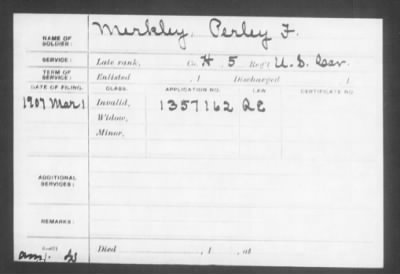 NAME OF SOLDIER: Merkley, Perley F.
SERVICE: Late rank, Co. H, 5 Reg't U.S. Cav.
TERM OF SERVICE: Enlisted , 1 Discharged , 1
DATE OF FILING. CLASS. APPLICATION NO. LAW CERTIFICATE NO.
1907 Mar 1 Invalid, 1357162
Widow,
Minor,
ADDITIONAL SERVICES:
REMARKS:
Died , 1 , at